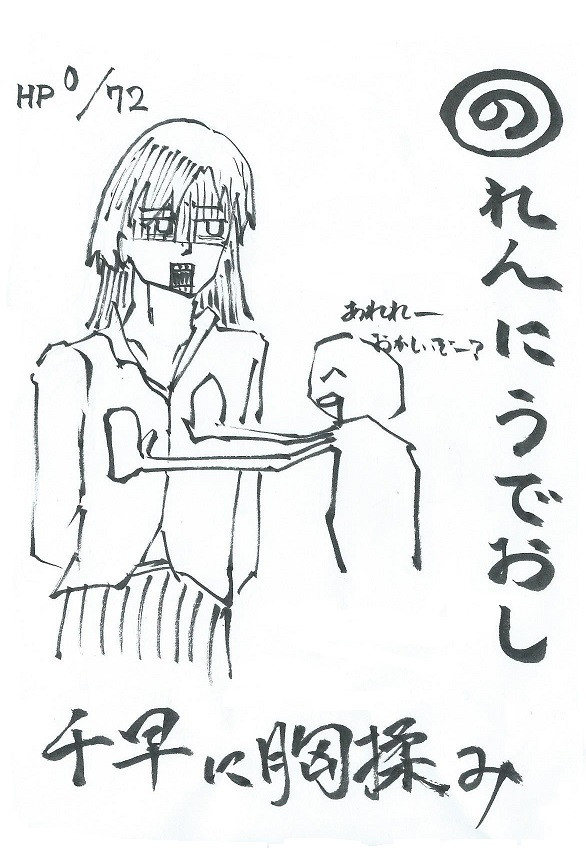 HP 0/72
のれんにうでおし
あれれー
おかしいぞー?
千早に胸揉み